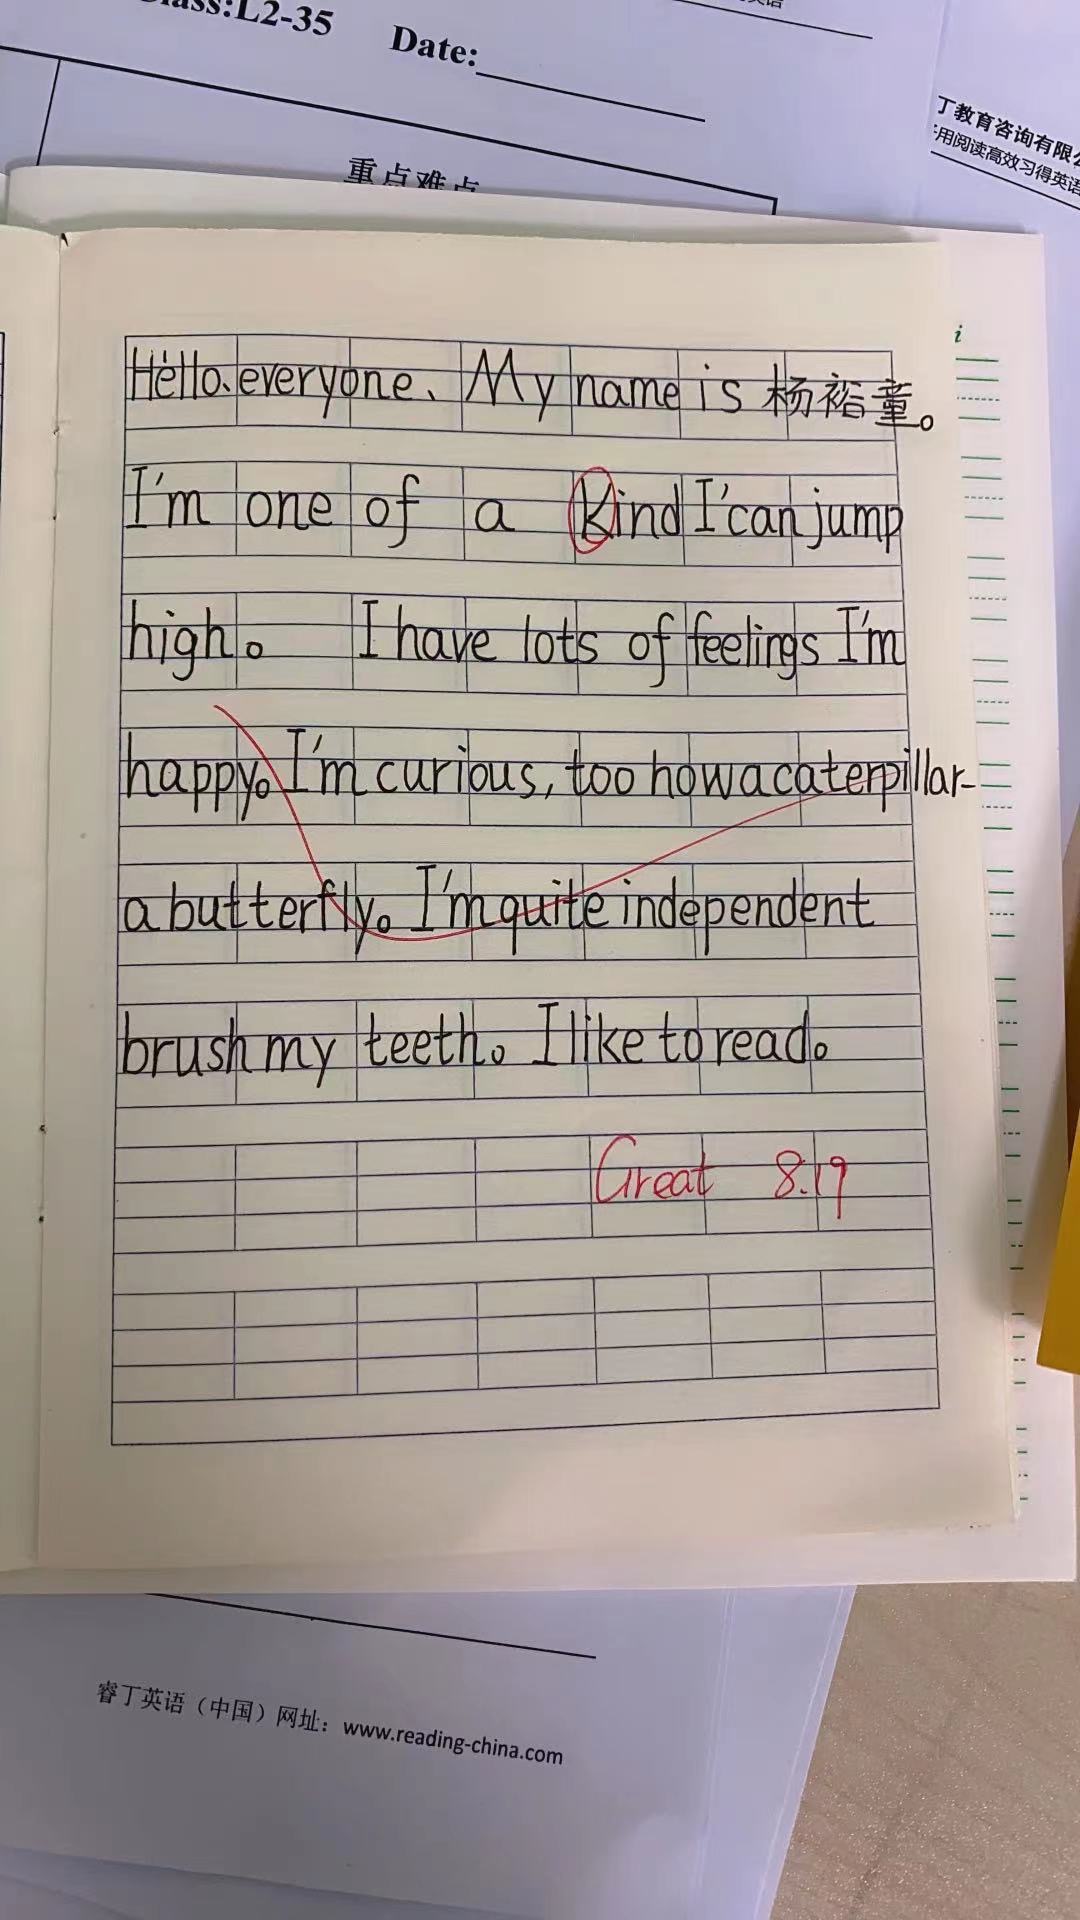 Class:L2-35 Date:
重点难点
丁教育咨询有限公
用阅读高效习得英语
i
Hello、everyone、 My name is 杨裕童。
I'm one of a Kind I'can jump
high。 I have lots of feelings I'm
happy。I'm curious, too how a caterpillar-
a butterfly。I'm quite independent
brush my teeth。I like to read。
Great 8.19
睿丁英语（中国）网址：www.reading-china.com